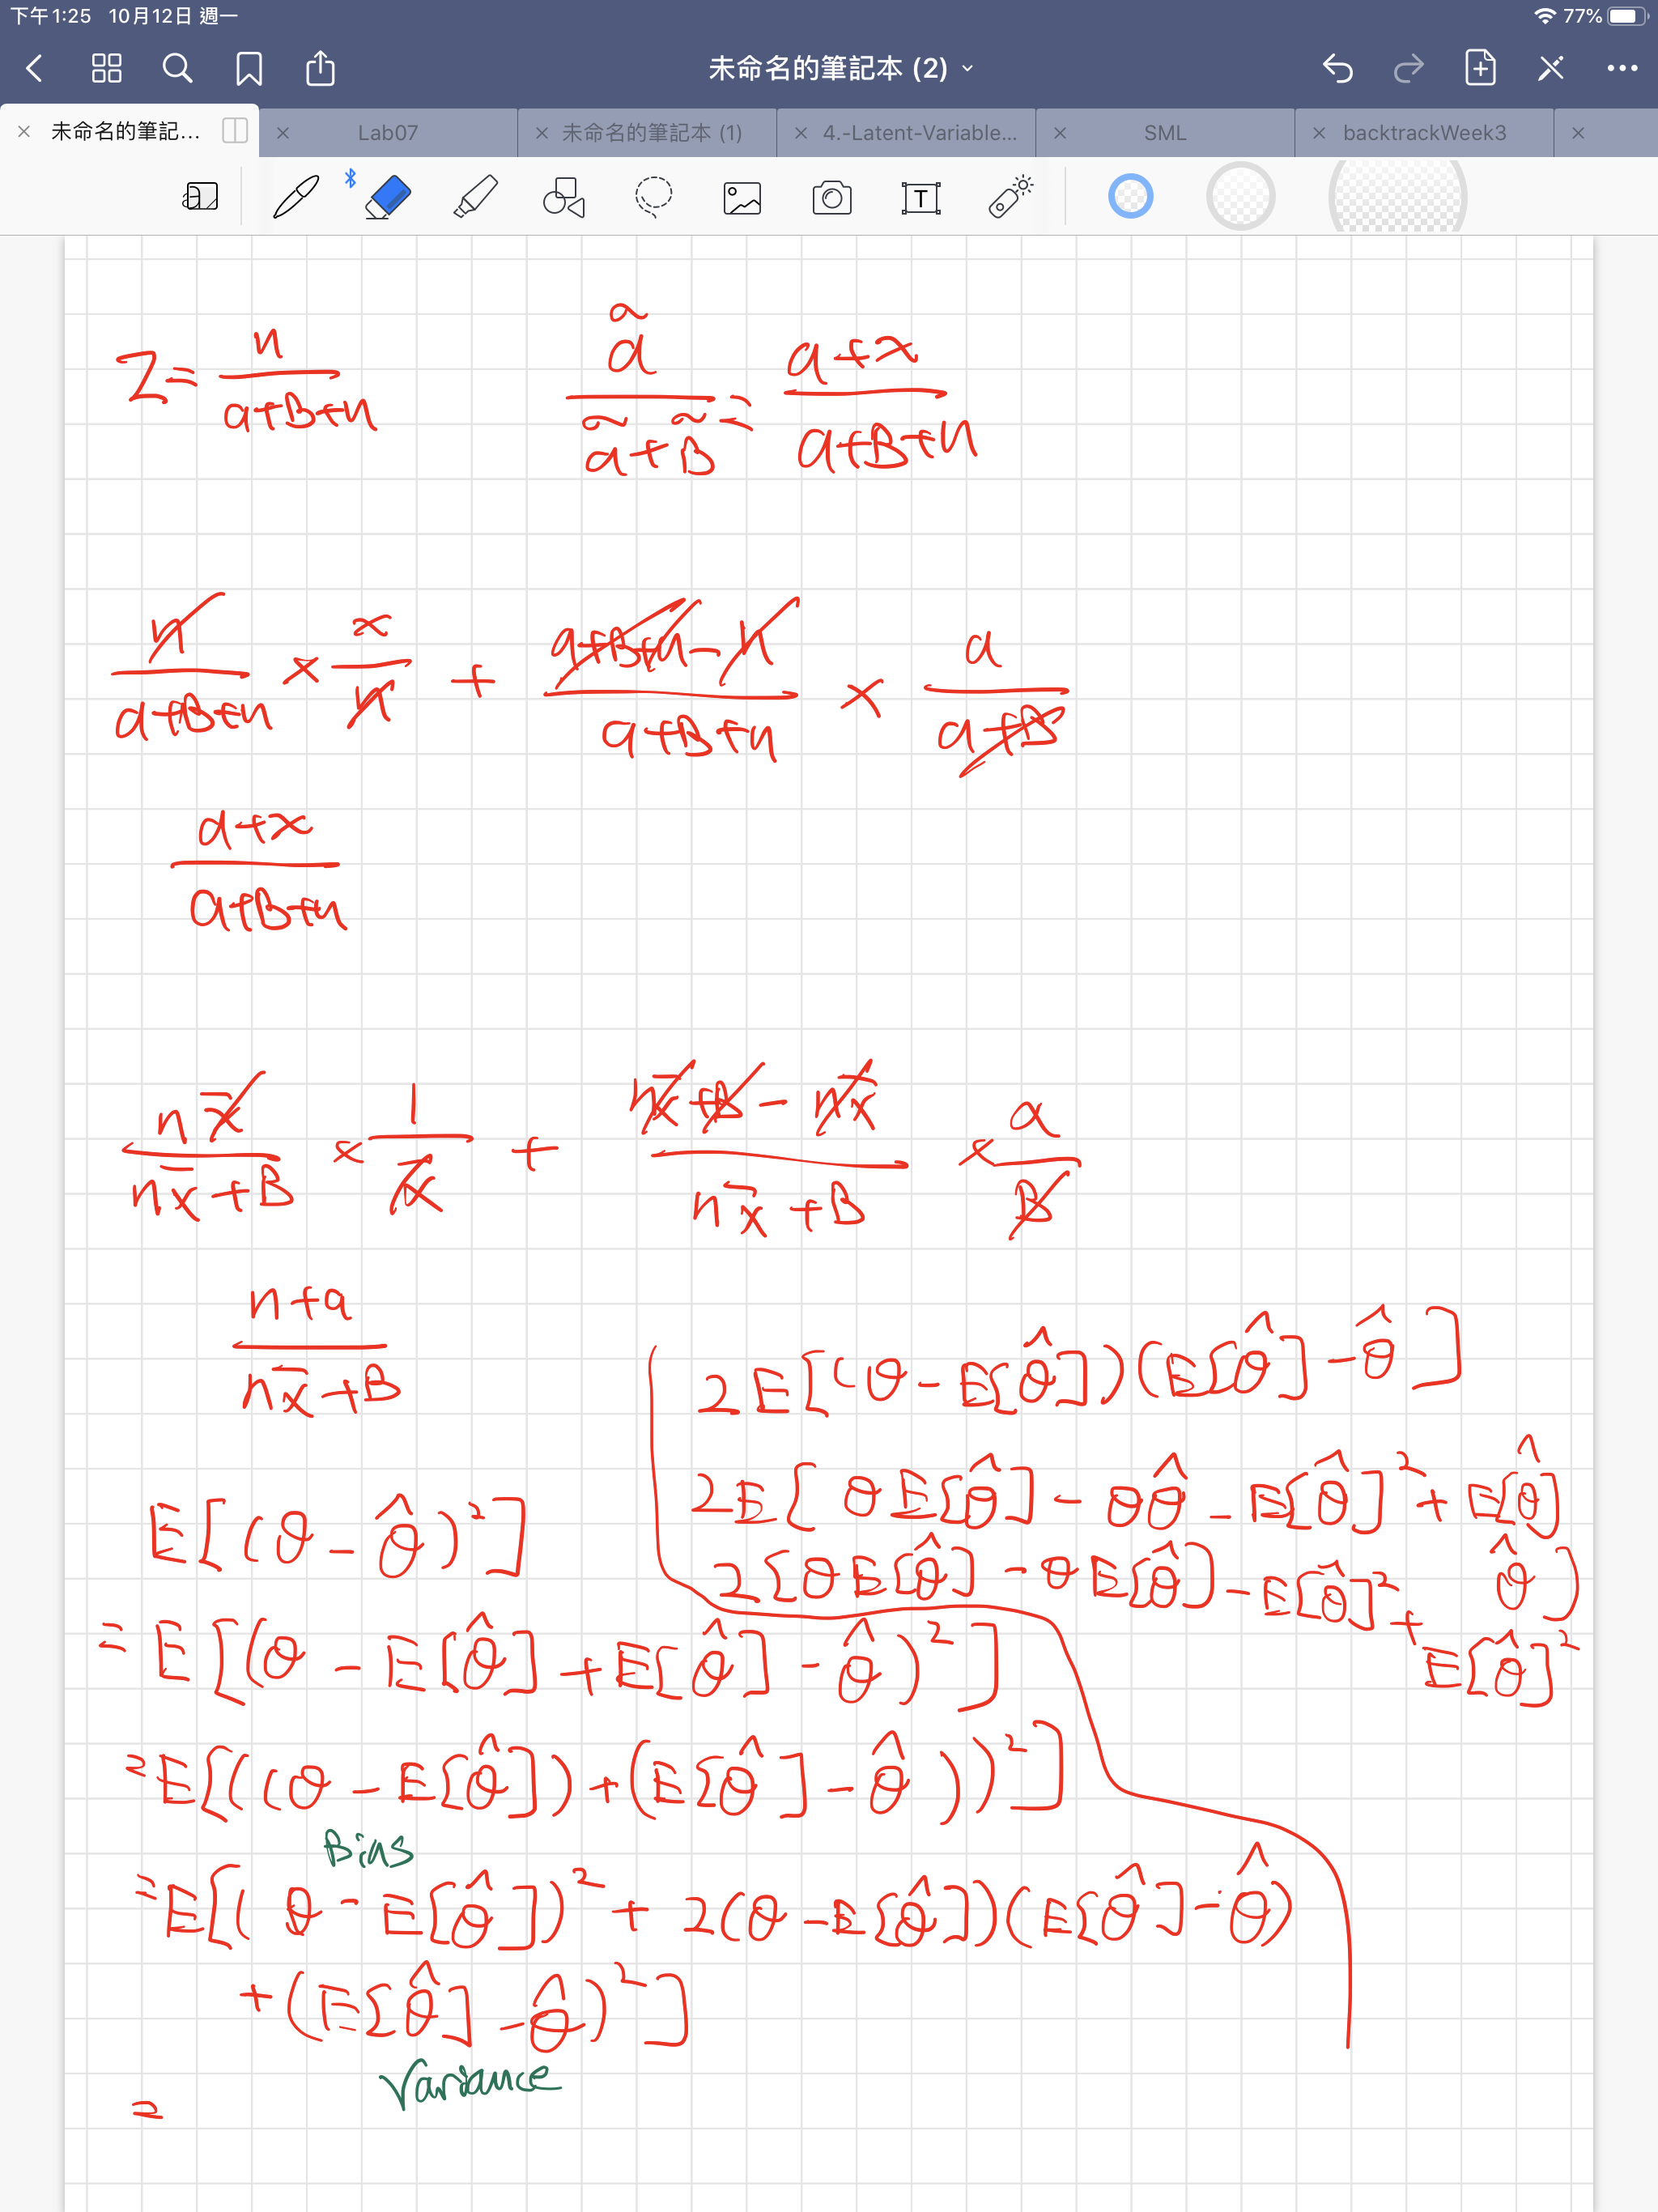 下午1:25 10月12日 週一 77%
未命名的筆記本 (2)
未命名的筆記... Lab07 未命名的筆記本 (1) 4.-Latent-Variable... SML backtrackWeek3
T
Z = n/(a+B+n) ã/(ã+B̃) = (a+x)/(a+B+n)
n/(a+B+n) × x/n + (a+B+n-n)/(a+B+n) × a/(a+B)
(a+x)/(a+B+n)
nx̄/(nx̄+B) × 1/x̄ + (nx̄+B-nx̄)/(nx̄+B) × a/B
(n+a)/(nx̄+B)
2E[(θ-E[θ̂])(E[θ̂]-θ̂]
2E[θE[θ̂]-θθ̂-E[θ̂]²+E[θ̂]
θ̂]
2[θE[θ̂]-θE[θ̂]-E[θ̂]²+
E[θ̂]²
E[(θ-θ̂)²]
= E[(θ-E[θ̂]+E[θ̂]-θ̂)²]
= E[((θ-E[θ̂])+(E[θ̂]-θ̂))²]
Bias
= E[(θ-E[θ̂])²+2(θ-E[θ̂])(E[θ̂]-θ̂)
+(E[θ̂]-θ̂)²]
Variance
=